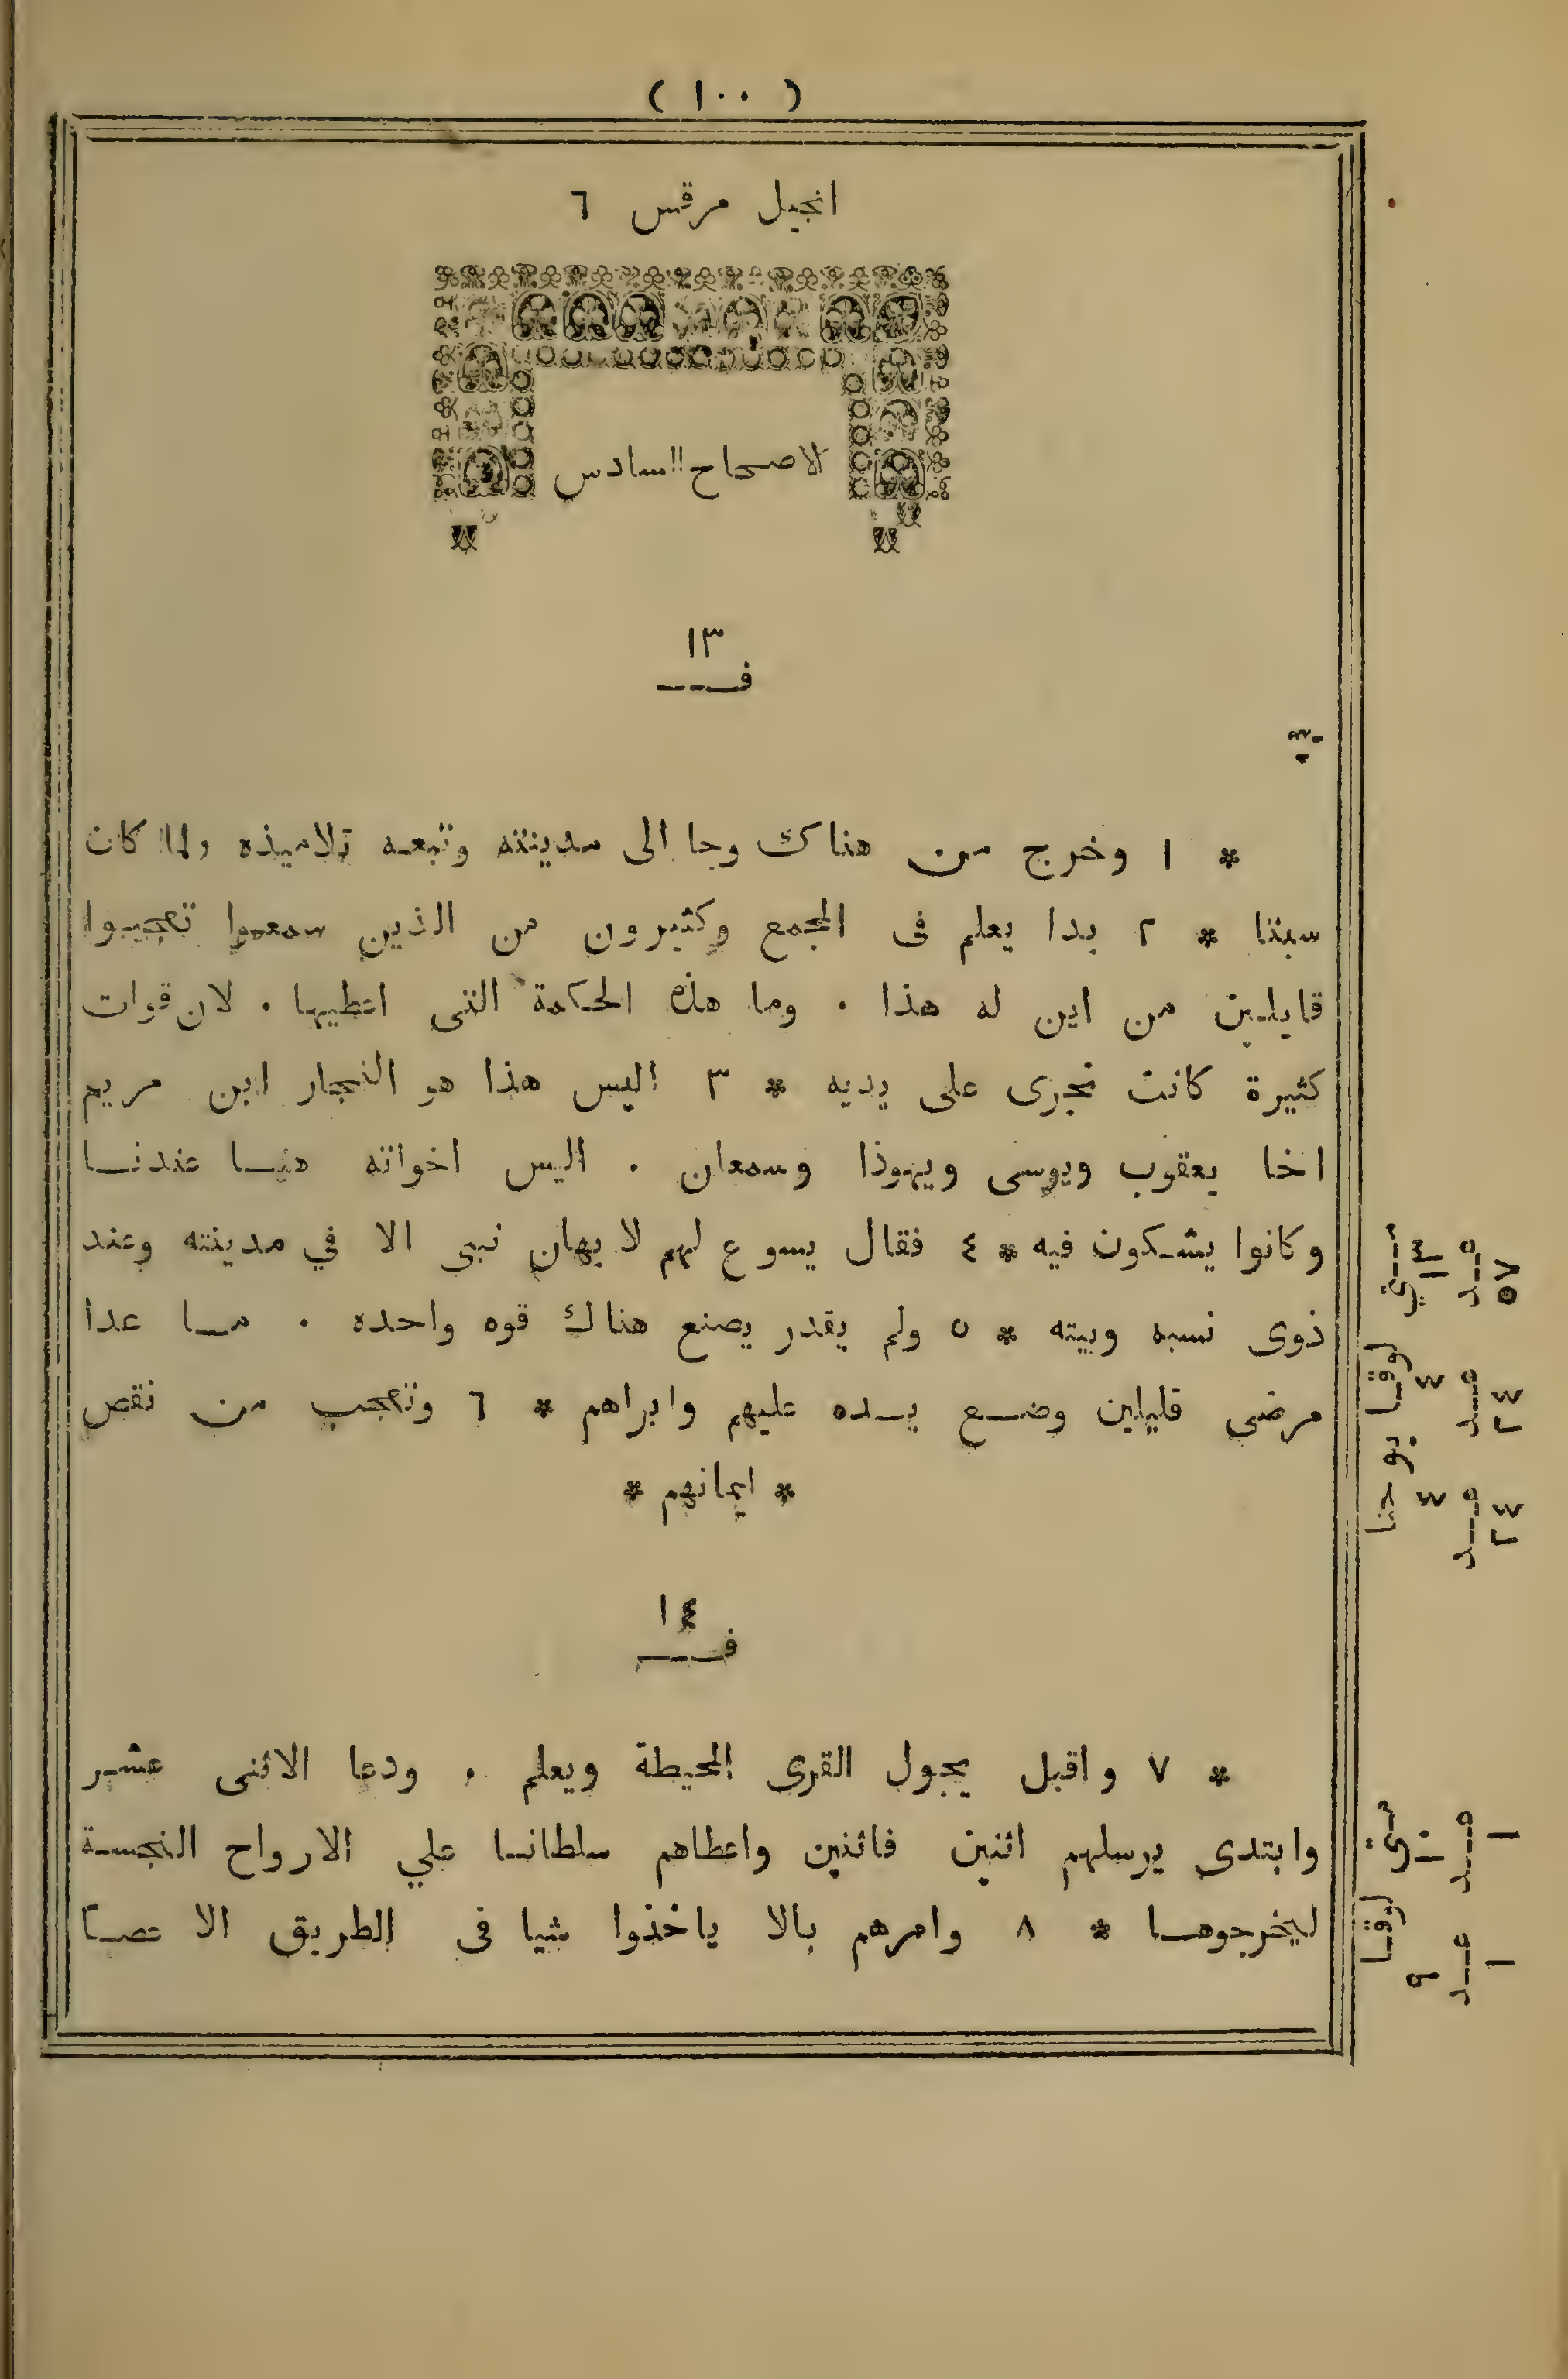 ( ١٠٠ )
انجيل مرقس ٦
الاصحاح السادس
١٣
فـــ
* ١ وخرج من هناك وجا الى مدينته وتبعه تلاميذه ولما كان
سبتا * ٢ بدا يعلم فى المجمع وكثيرون من الذين سمعوا تعجبوا
قايلين من اين له هذا . وما هذه الحكمة التى اعطيها . لان قوات
كثيرة كانت تجرى على يديه * ٣ اليس هذا هو النجار ابن مريم
اخا يعقوب ويوسى ويهوذا وسمعان . اليس اخواته هنا عندنا
وكانوا يشكون فيه * ٤ فقال يسوع لهم لا يهان نبى الا في مدينته وعند
ذوى نسبه وبيته * ٥ ولم يقدر يصنع هناك قوه واحده . ما عدا
مرضى قليلين وضع يده عليهم وابراهم * ٦ وتعجب من نقص
* ايمانهم *
١٤
فـــ
* ٧ واقبل يجول القرى المحيطة ويعلم . ودعا الاثنى عشر
وابتدى يرسلهم اثنين فاثنين واعطاهم سلطانا علي الارواح النجسة
ليخرجوها * ٨ وامرهم بالا ياخذوا شيا فى الطريق الا عصا
متي ١٣ عدد ٥٧
لوقا ٤ عدد ٢٤
يوحنا ٤ عدد ٤٤
متى ١٠ عدد ١
لوقا ٩ عدد ١